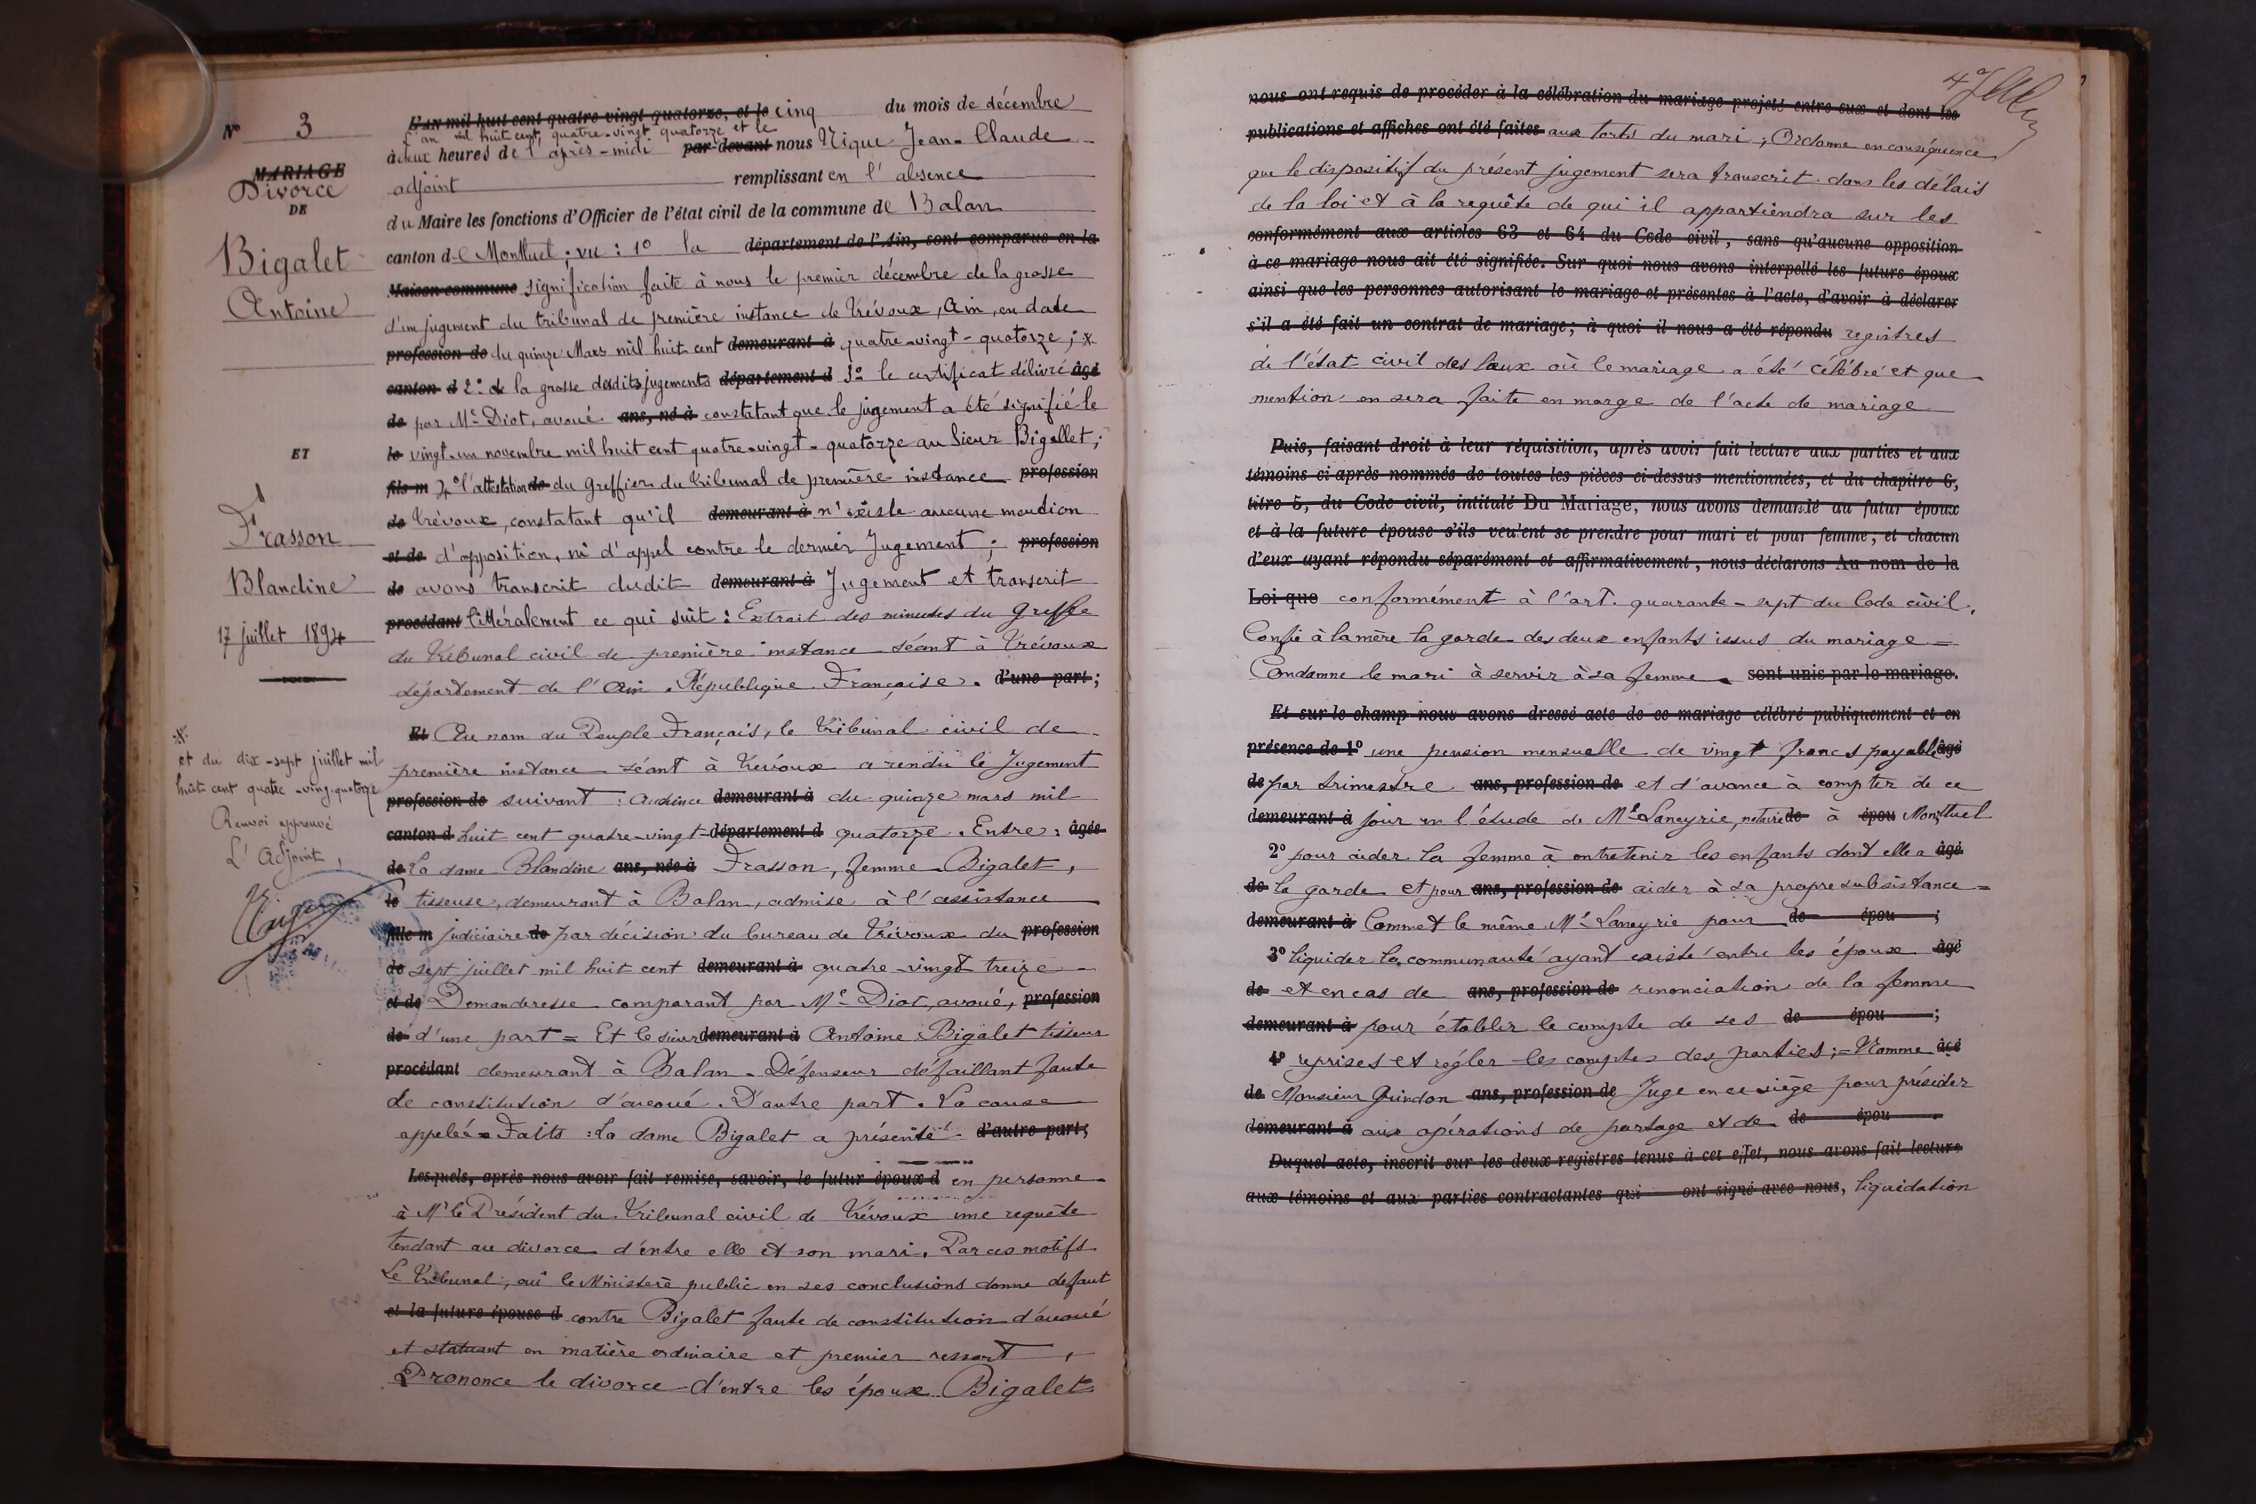 N° 3
MARIAGE
Divorce
DE
Bigalet
Antoine
ET
Frasson
Blandine
17 juillet 1894
et du dix-sept juillet mil
huit cent quatre-vingt-quatorze
Renvoi approuvé
L'Adjoint,
L'AN mil huit cent quatre-vingt-quatorze, et le cinq du mois de décembre
L'an mil huit cent quatre-vingt quatorze et le
à deux heures de l'après-midi par-devant nous Nique Jean-Claude
adjoint remplissant en l'absence
du Maire les fonctions d'Officier de l'état civil de la commune de Balan
canton de Montluel ; vu : 1° la département de l'Ain, sont comparus en la
Maison commune signification faite à nous le premier décembre de la grosse
d'un jugement du tribunal de première instance de Trévoux, Ain, en date
profession de du quinze Mars mil huit cent demeurant à quatre-vingt-quatorze ; x
canton d 2° de la grosse desdits jugements département d 3° le certificat délivré âgé
de par Me Diot, avoué ans, né à constatant que le jugement a été signifié le
le vingt-un novembre mil huit cent quatre-vingt-quatorze au Sieur Bigallet ;
fils m 4° l'attestation de du Greffier du tribunal de première instance profession
de Trévoux, constatant qu'il demeurant à n'existe aucune mention
et de d'opposition, ni d'appel contre le dernier Jugement ; profession
de avons transcrit dudit demeurant à Jugement et transcrit
procédant littéralement ce qui suit : Extrait des minutes du Greffe
du Tribunal civil de première instance séant à Trévoux
département de l'Ain. République Française. d'une part ;
Et Au nom du Peuple Français, le Tribunal civil de
première instance séant à Trévoux a rendu le Jugement
profession de suivant : Audience demeurant à du quinze mars mil
canton d huit cent quatre-vingt-département d quatorze. Entre : âgée
de La dame Blandine ans, née à Frasson, femme Bigalet,
le tisseuse, demeurant à Balan, admise à l'assistance
fille m judiciaire de par décision du bureau de Trévoux du profession
de sept juillet mil huit cent demeurant à quatre-vingt treize
et de Demanderesse comparant par Me Diot, avoué, profession
de d'une part = Et le sieur demeurant à Antoine Bigalet tisseur
procédant demeurant à Balan. Défenseur défaillant faute
de constitution d'avoué. D'autre part. La cause
appelée = Faits : La dame Bigalet a présenté d'autre part ;
Lesquels, après nous avoir fait remise, savoir, le futur époux d en personne
à Mr le Président du Tribunal civil de Trévoux une requête
tendant au divorce d'entre elle et son mari. Par ces motifs
Le Tribunal, ouï le Ministère public en ses conclusions donne défaut
et la future épouse d contre Bigalet faute de constitution d'avoué
et statuant en matière ordinaire et premier ressort,
Prononce le divorce d'entre les époux Bigalet
nous ont requis de procéder à la célébration du mariage projeté entre eux et dont les
publications et affiches ont été faites aux torts du mari ; Ordonne en conséquence
que le dispositif du présent jugement sera transcrit dans les délais
de la loi et à la requête de qui il appartiendra sur les
conformément aux articles 63 et 64 du Code civil, sans qu'aucune opposition
à ce mariage nous ait été signifiée. Sur quoi nous avons interpellé les futurs époux
ainsi que les personnes autorisant le mariage et présentes à l'acte, d'avoir à déclarer
s'il a été fait un contrat de mariage ; à quoi il nous a été répondu registres
de l'état civil des lieux où le mariage a été célébré et que
mention en sera faite en marge de l'acte de mariage
Puis, faisant droit à leur réquisition, après avoir fait lecture aux parties et aux
témoins ci-après nommés de toutes les pièces ci-dessus mentionnées, et du chapitre 6,
titre 5, du Code civil, intitulé Du Mariage, nous avons demandé au futur époux
et à la future épouse s'ils veulent se prendre pour mari et pour femme, et chacun
d'eux ayant répondu séparément et affirmativement, nous déclarons Au nom de la
Loi que conformément à l'art. quarante-sept du Code civil.
Confie à la mère la garde des deux enfants issus du mariage =
Condamne le mari à servir à sa femme sont unis par le mariage.
Et sur-le-champ nous avons dressé acte de ce mariage célébré publiquement et en
présence de 1° une pension mensuelle de vingt francs payable âgé
de par trimestre ans, profession de et d'avance à compter de ce
demeurant à jour en l'étude de Me Laneyrie, notaire de à épou Montluel
2° pour aider la femme à entretenir les enfants dont elle a âgé
de la garde et pour ans, profession de aider à sa propre subsistance =
demeurant à Commet le même Me Laneyrie pour de épou ;
3° liquider la communauté ayant existé entre les époux âgé
de et en cas de ans, profession de renonciation de la femme
demeurant à pour établir le compte de ses de épou ;
4° reprises et régler les comptes des parties ; = Nomme âgé
de Monsieur Grindon ans, profession de Juge en ce siège pour présider
demeurant à aux opérations de partage et de de épou .
Duquel acte, inscrit sur les deux registres tenus à cet effet, nous avons fait lecture
aux témoins et aux parties contractantes qui ont signé avec nous, liquidation